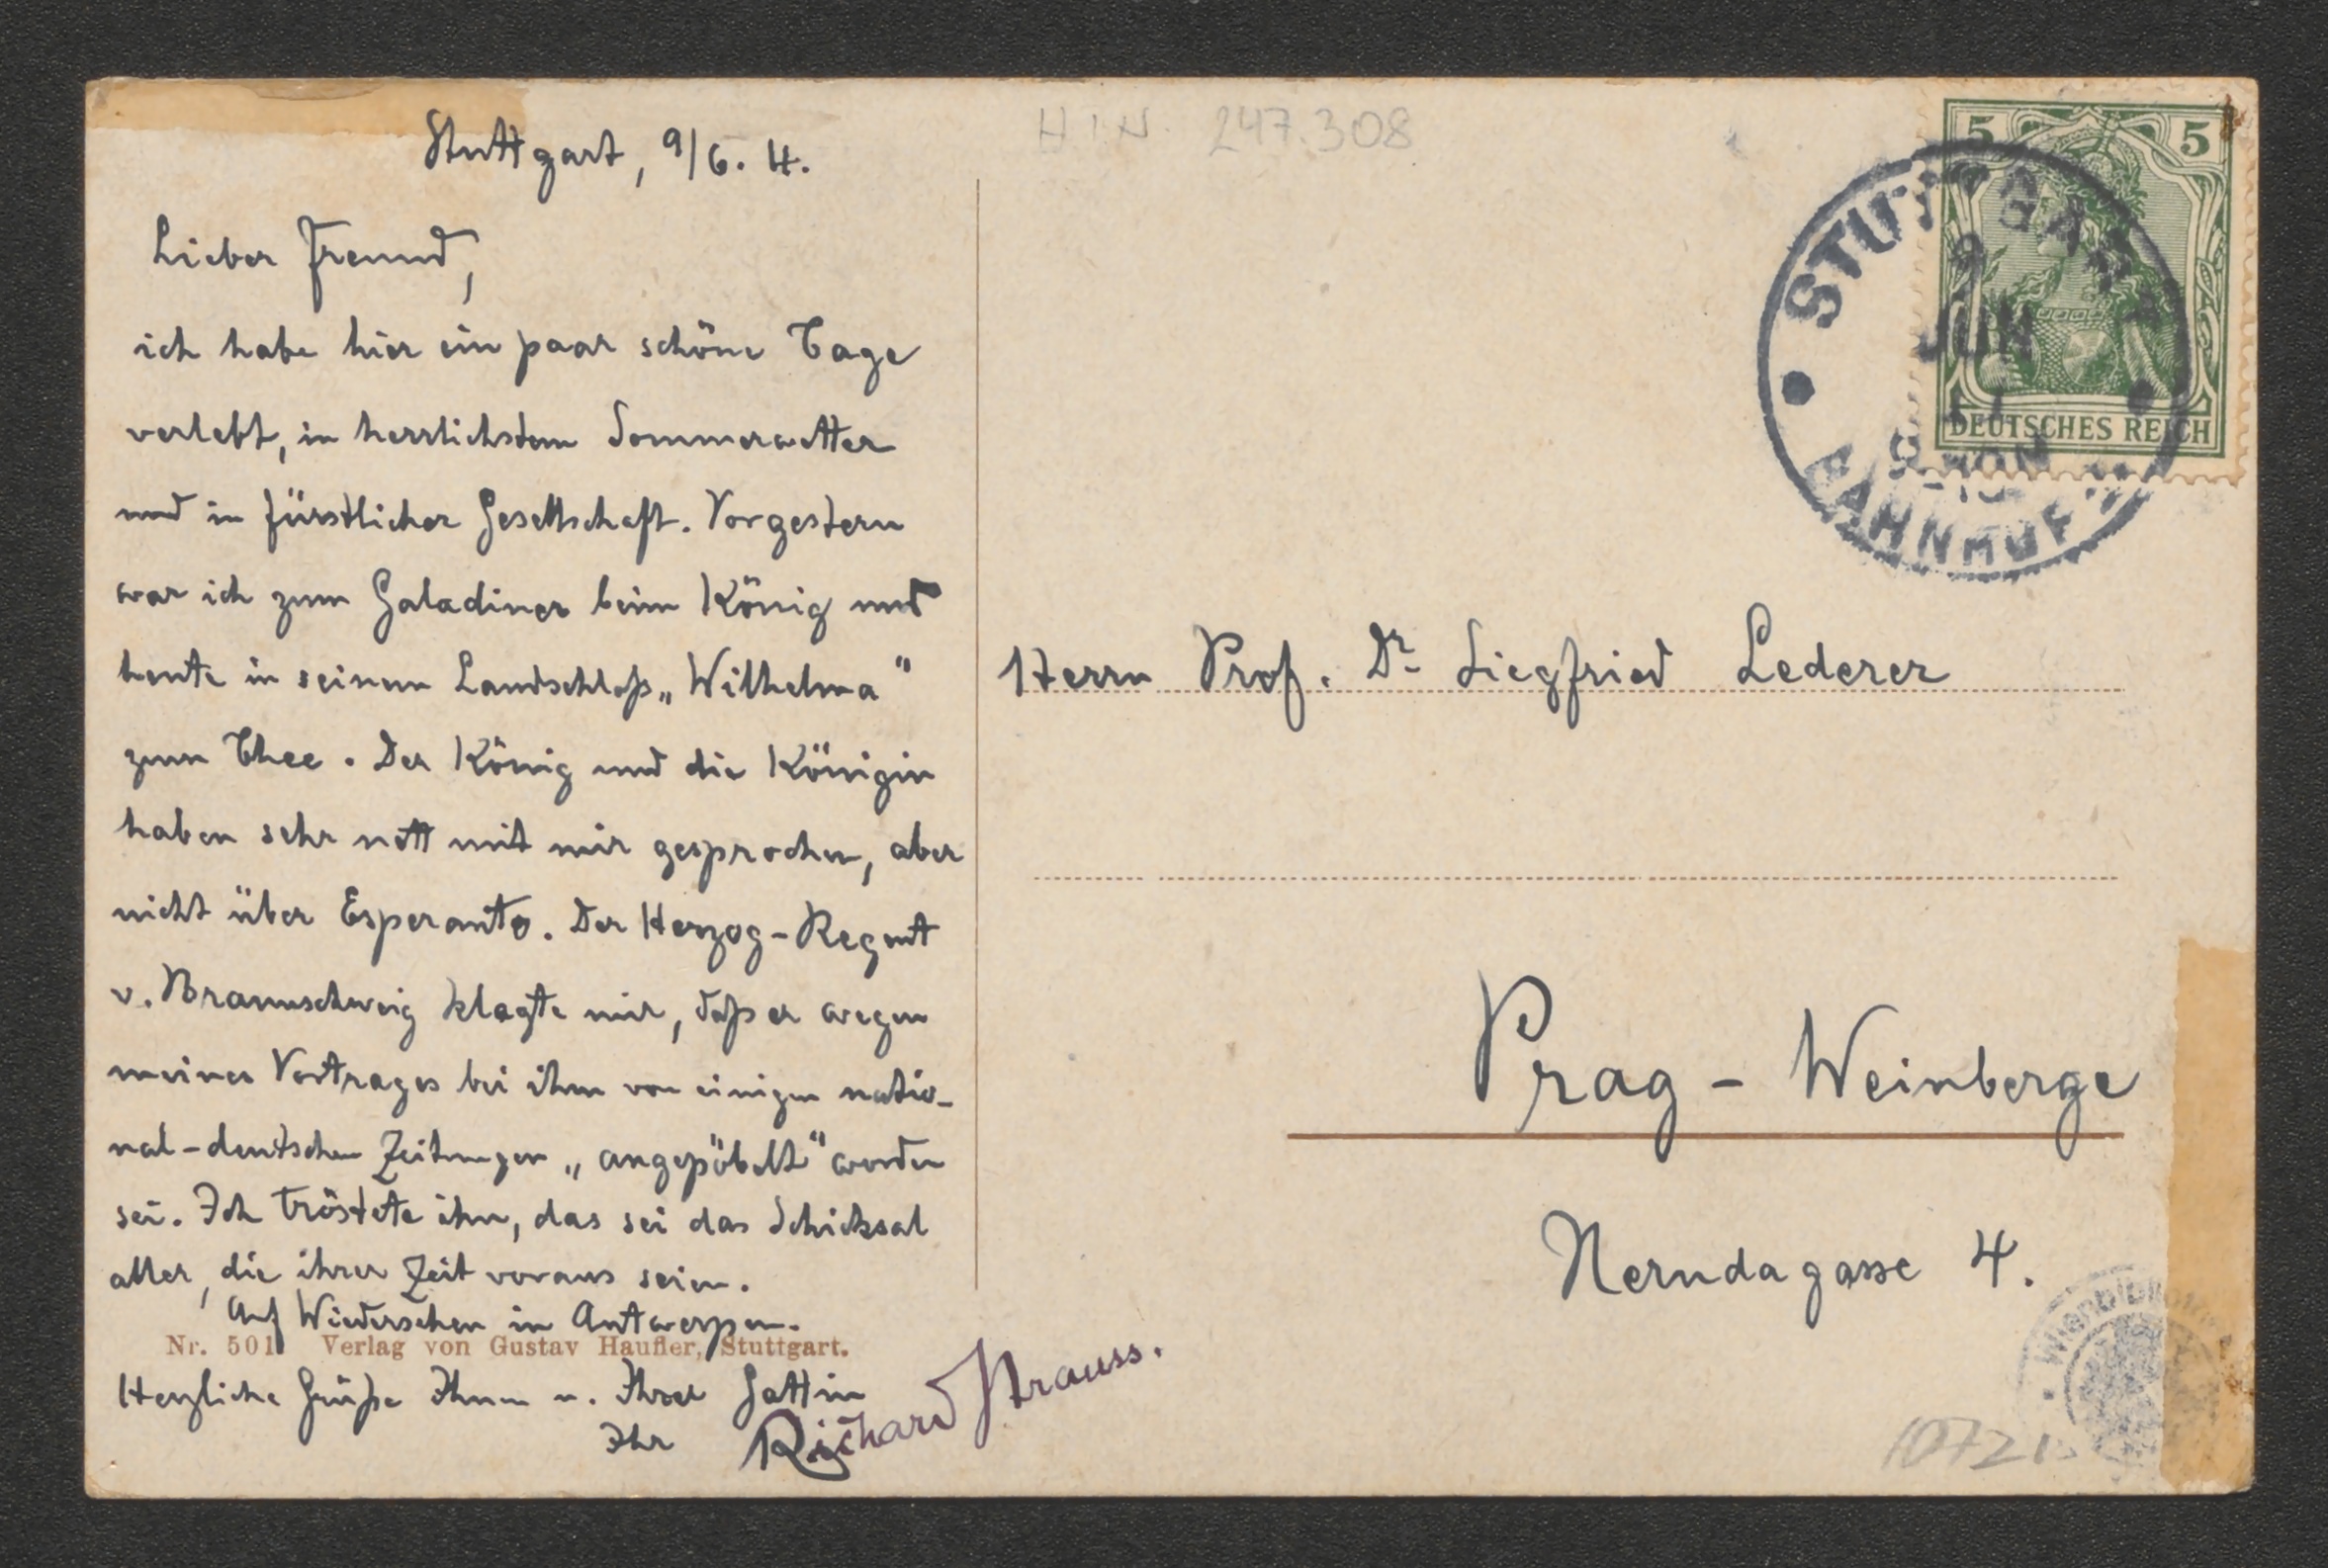 Stuttgart, 9/6. 11.
Lieber Freund,
ich habe hier ein paar schöne Tage
verlebt, in herrlichstem Sommerwetter
und in fürstlicher Gesellschaft. Vorgestern
war ich zum Galadiner beim König und
heute in seinem Landschloß „Wilhelma"
zum Thee. Der König und die Königin
haben sehr nett mit mir gesprochen, aber
nicht über Esperanto. Der Herzog-Regent
v. Braunschweig klagte mir, daß er wegen
meines Vortrages bei ihm von einigen natio-
nal-deutschen Zeitungen „angepöbelt" worden
sei. Ich tröstete ihn, das sei das Schicksal
aller, die ihrer Zeit voraus seien.
Auf Wiedersehen in Antwerpen.
Nr. 501 Verlag von Gustav Haufler, Stuttgart.
Herzliche Grüße Ihnen u. Ihrer Gattin
Ihr Richard Strauss.
H.I.N. 247.308
5 5
DEUTSCHES REICH
STUTTGART
9
JUN
BAHNHOF
Herrn Prof. Dr. Siegfried Lederer
Prag - Weinberge
Nerudagasse 4.
Wienbibliothek